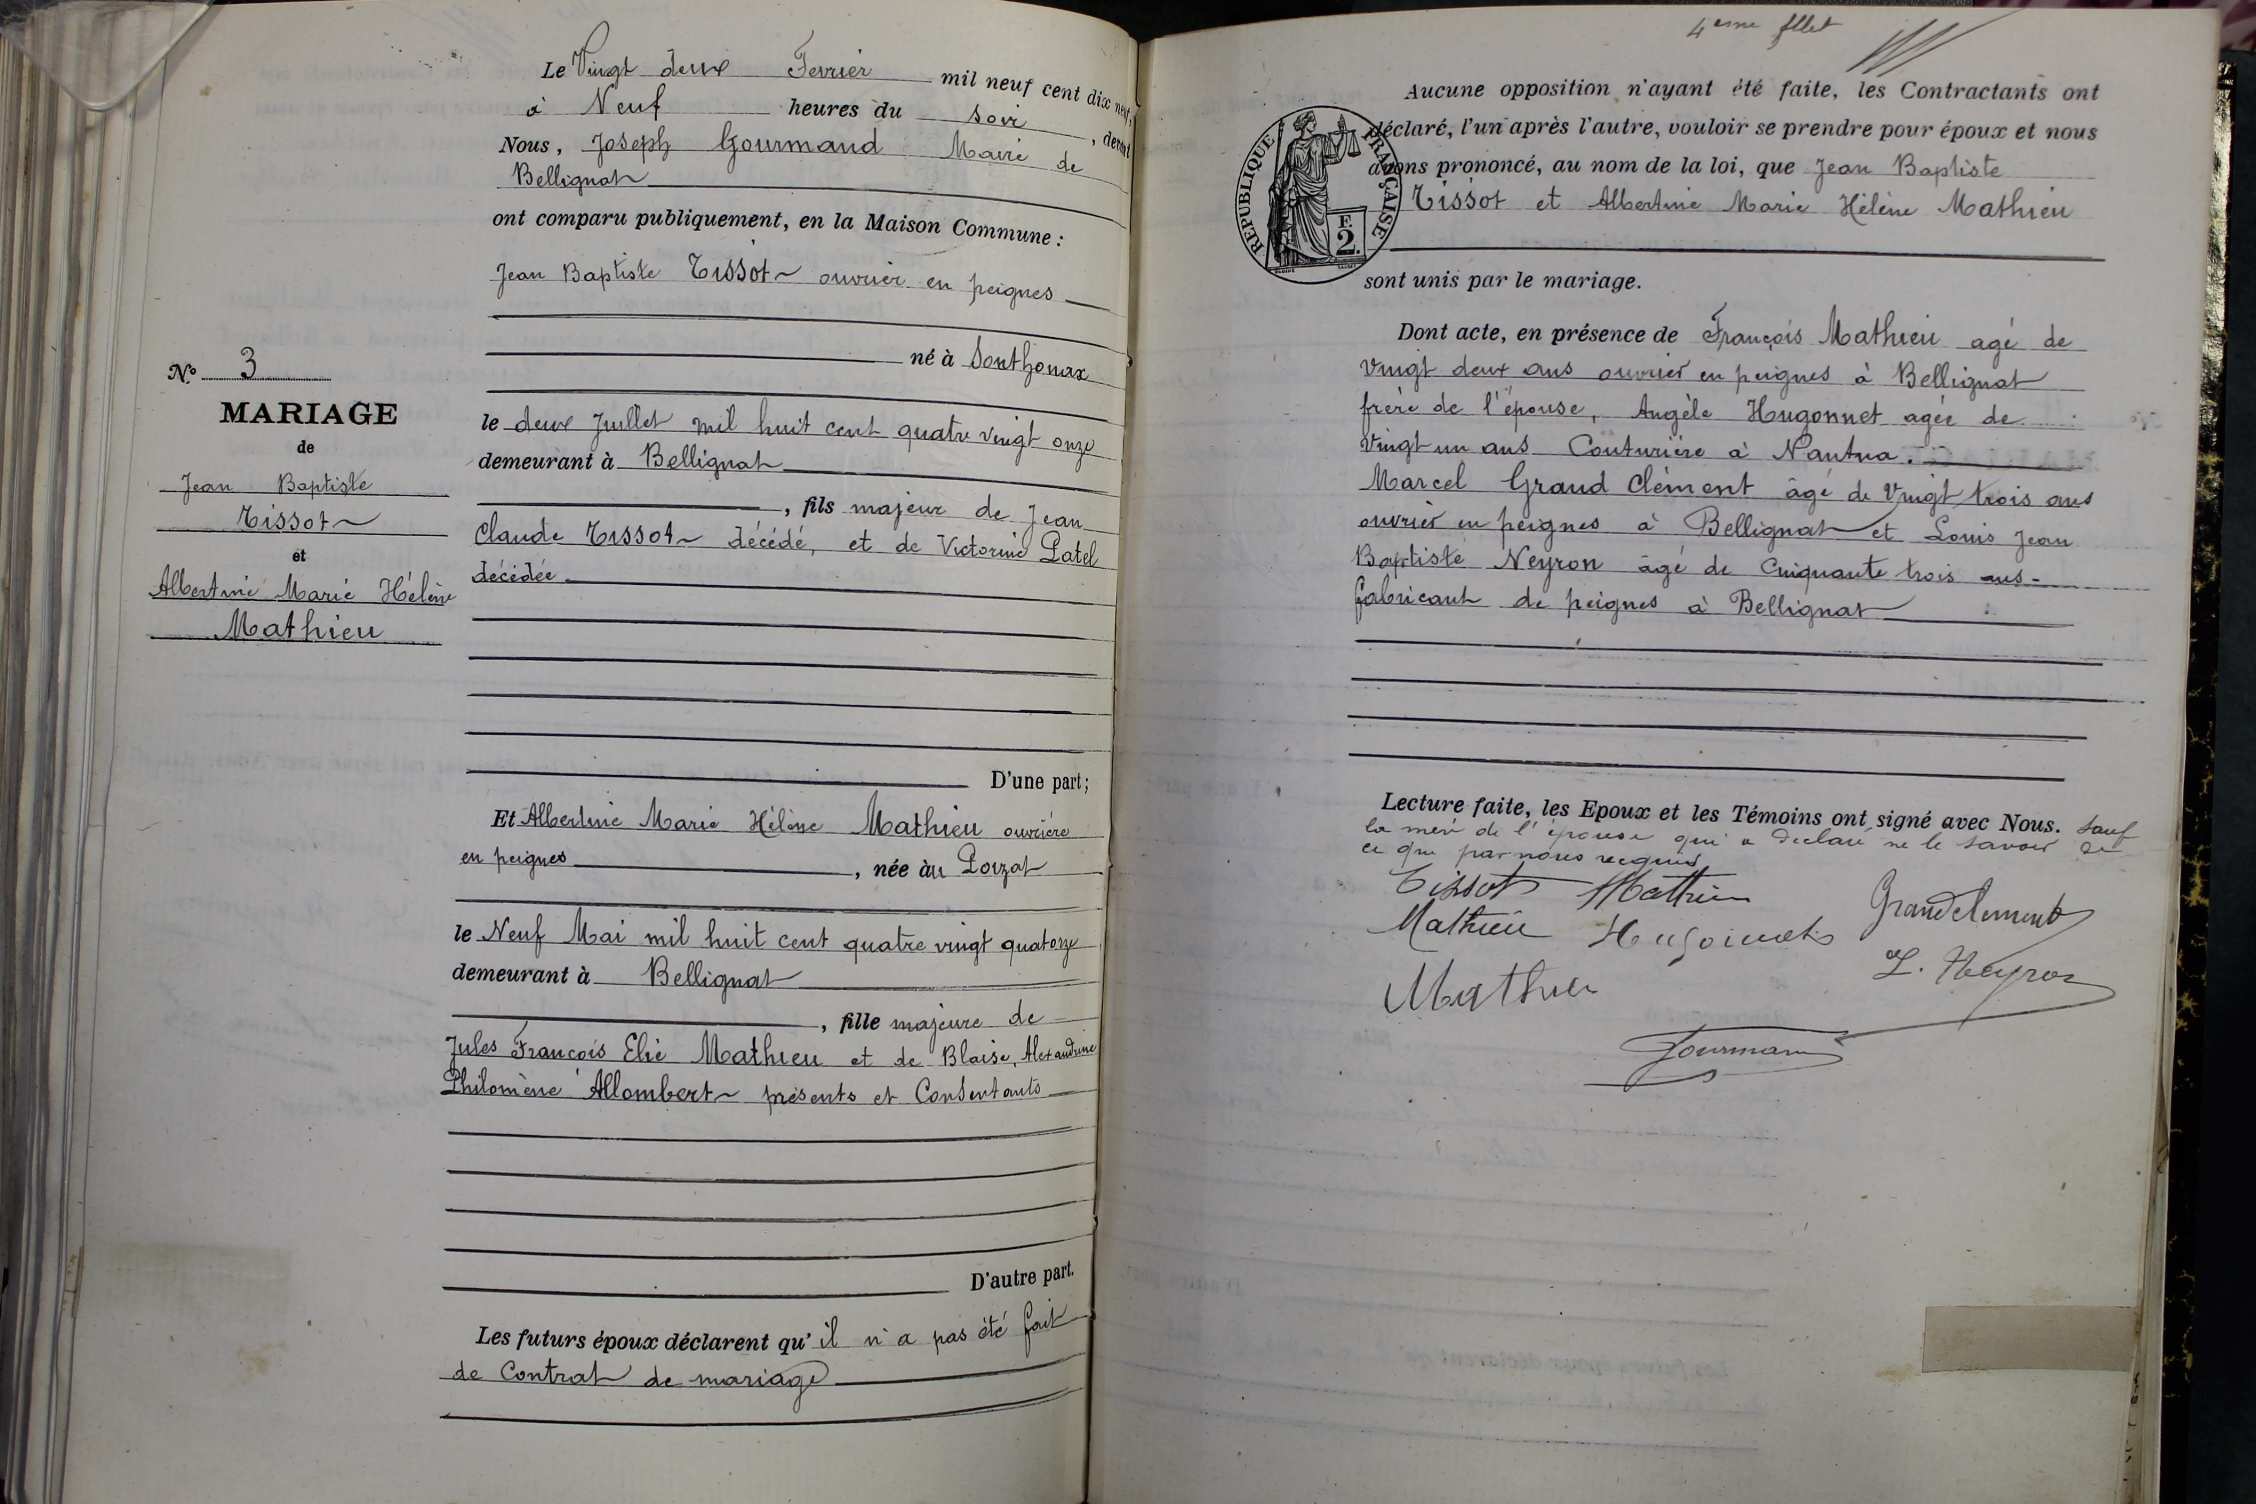 Le Vingt deux Fevrier mil neuf cent dix neuf,
à Neuf heures du soir, devant
Nous, Joseph Gourmand Maire de
Bellignat
ont comparu publiquement, en la Maison Commune :
Jean Baptiste Tissot ouvrier en peignes
né à Sonthonax
le deux Juillet mil huit cent quatre vingt onze
demeurant à Bellignat
, fils majeur de Jean
Claude Tissot décédé, et de Victorine Patel
décédée
D'une part ;
Et Albertine Marie Hélène Mathieu ouvrière
en peignes, née àu Poizat
le Neuf Mai mil huit cent quatre vingt quatorze
demeurant à Bellignat
, fille majeure de
Jules François Elie Mathieu et de Blaise, Alexandrine
Philomène Allombert présents et Consentants
D'autre part.
Les futurs époux déclarent qu'il n'a pas été fait
de Contrat de mariage
N.º 3
MARIAGE
de
Jean Baptiste
Tissot
et
Albertine Marie Hélène
Mathieu
4eme fllet
Aucune opposition n'ayant été faite, les Contractants ont
déclaré, l'un après l'autre, vouloir se prendre pour époux et nous
avons prononcé, au nom de la loi, que Jean Baptiste
Tissot et Albertine Marie Hélène Mathieu
REPUBLIQUE FRANÇAISE
F.
2.
sont unis par le mariage.
Dont acte, en présence de François Mathieu agé de
vingt deux ans ouvrier en peignes à Bellignat
frère de l'épouse, Angèle Hugonnet agée de
vingt un ans Couturière à Nantua.
Marcel Grand Clément âgé de Vingt trois ans
ouvrier en peignes à Bellignat et Louis Jean
Baptiste Neyron âgé de Cinquante trois ans
fabricant de peignes à Bellignat
Lecture faite, les Epoux et les Témoins ont signé avec Nous. sauf
la mère de l'épouse qui a declaré ne le savoir de
ce que par nous requis
Tissot Mathieu Grandclement
Mathieu Hugonnet
L. Neyron
Mathieu
Gourmand